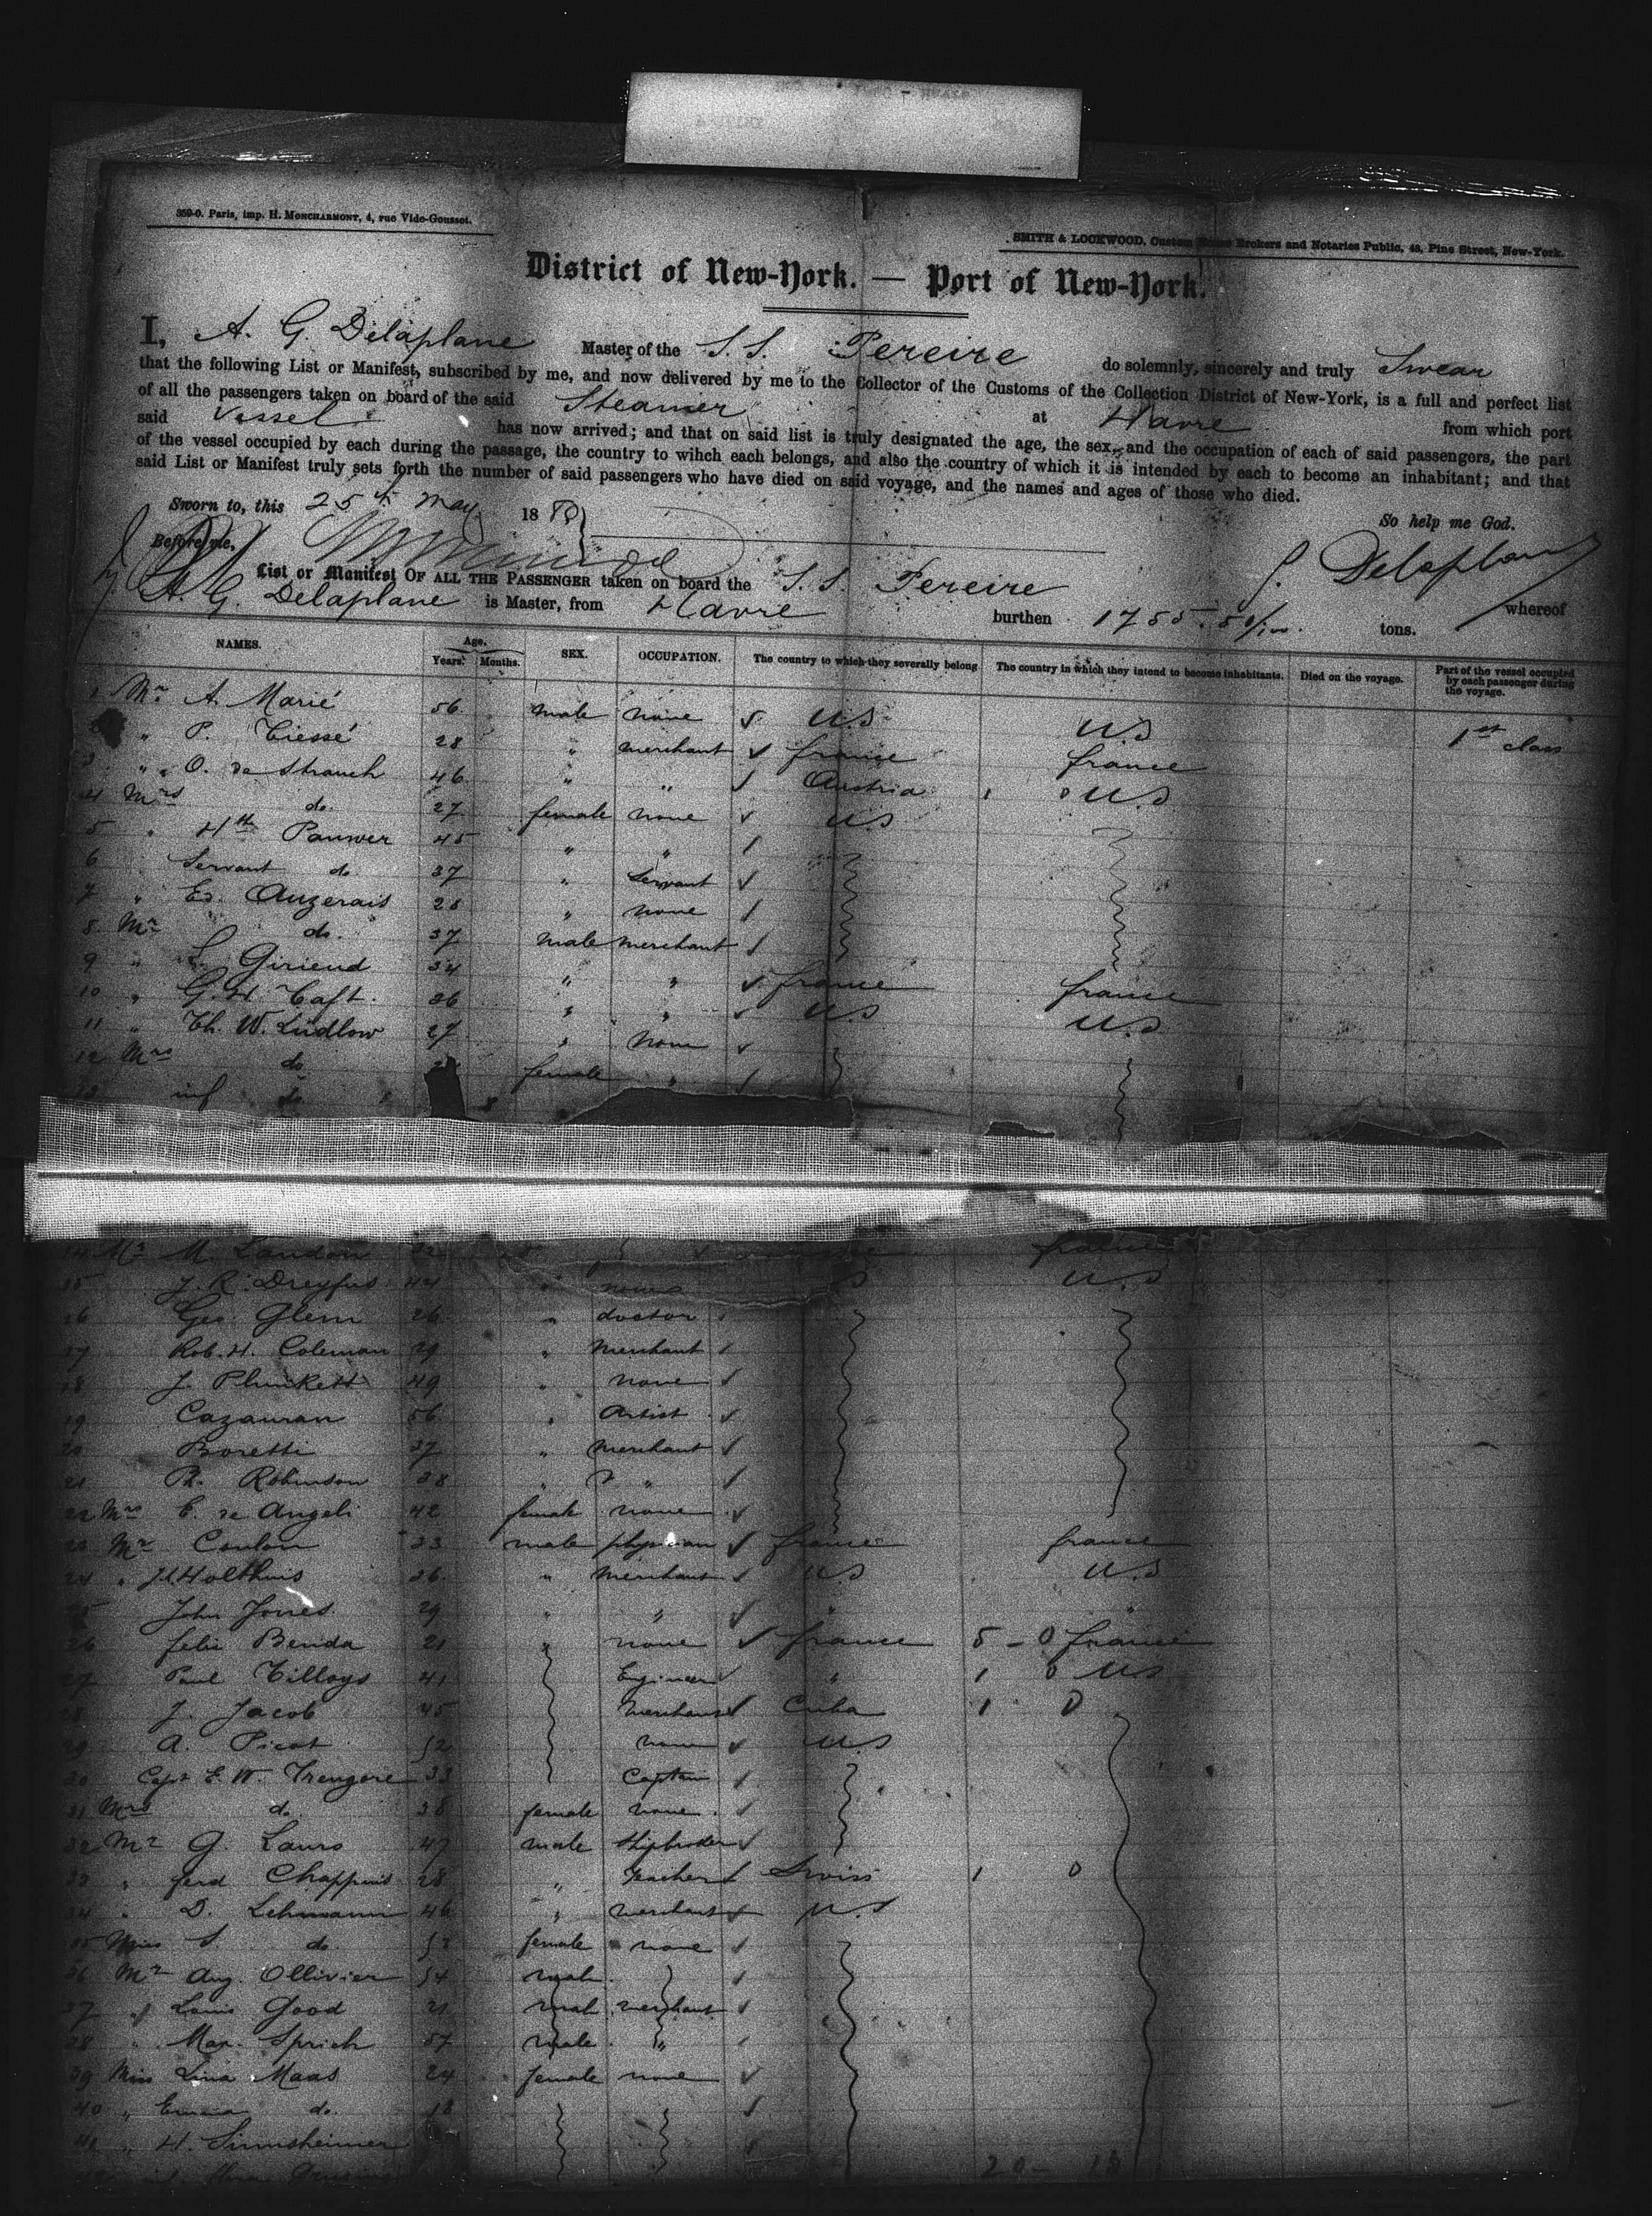 359-0. Paris, imp. H. MONCHARMONT, 4, rue Vide-Gousset.
SMITH & LOCKWOOD, Custom House Brokers and Notaries Public, 48, Pine Street, New-York.
District of New-York. — Port of New-York.
I, A. G. Delaplane Master of the S.S. Pereire do solemnly, sincerely and truly Swear
that the following List or Manifest, subscribed by me, and now delivered by me to the Collector of the Customs of the Collection District of New-York, is a full and perfect list
of all the passengers taken on board of the said Steamer at Havre from which port
said Vessel has now arrived; and that on said list is truly designated the age, the sex, and the occupation of each of said passengers, the part
of the vessel occupied by each during the passage, the country to wihch each belongs, and also the country of which it is intended by each to become an inhabitant; and that
said List or Manifest truly sets forth the number of said passengers who have died on said voyage, and the names and ages of those who died.
Sworn to, this 25th May 18
So help me God.
Before me,
Delaplane
List or Manifest OF ALL THE PASSENGER taken on board the S.S. Pereire whereof
A. G. Delaplane is Master, from Havre burthen 1755 tons.
NAMES. Age. Years. Months. SEX. OCCUPATION. The country to which they severally belong The country in which they intend to become inhabitants. Died on the voyage. Part of the vessel occupied by each passenger during the voyage.
1 Mr A. Marié 56 male none U.S U.S 1st class
2 " P. Tiessé 28 " merchant france france
3 " O. de Strauch 46 " " Austria 1 0 U.S
4 Mrs do. 27 female none U.S
5 " Hth Panwer 45 " "
6 Servant do 37 " Servant
7 " Ed. Auzerais 28 " none
8 Mr do. 37 male merchant
9 " L. Giriend 34 " " france france
10 " G. H. Taft. 36 " " U.S U.S
11 " Th. W. Ludlow 27 " none
12 Mrs do female "
13 inf do 8
14 Mr M. Landon 32 france
15 J. R. Dreyfus 44 " none U.S
16 Geo. Glenn 26 " doctor
17 Rob. H. Coleman 29 " Merchant
18 J. Plunkett 49 " none
19 Cazauran 56 " Artist
20 Boretti 37 " Merchant
21 Ph. Robinson 38 " "
22 Mrs E. de Angeli 42 female none
23 Mr Coulon 33 male physician france france
24 " Holthuis 36 " Merchant U.S U.S
25 John Jones 29 " " " "
26 felix Benda 21 " none france 5 - 0 france
27 Paul Tilloys 41 Engineer " 1 0 U.S
28 J. Jacob 45 Merchant Cuba 1 0
29 A. Picot 52 none U.S
30 Capt E. W. Trengore 33 Captain
31 Mrs do. 38 female none
32 Mr G. Lauro 47 male Shipbroker
33 " ferd Chappuis 28 " Teacher Swiss 1 0
34 " D. Lehmann 46 " merchant U.S
35 Miss S. do. female none
36 Mr Aug. Ollivier 54 male
37 " Louis Good 21 male merchant
38 " Max. Sprich 57 male "
39 Miss Lina Maas 24 female none
40 " Emma do. 18
41 " H. Sinnsheimer
42
20 - 13